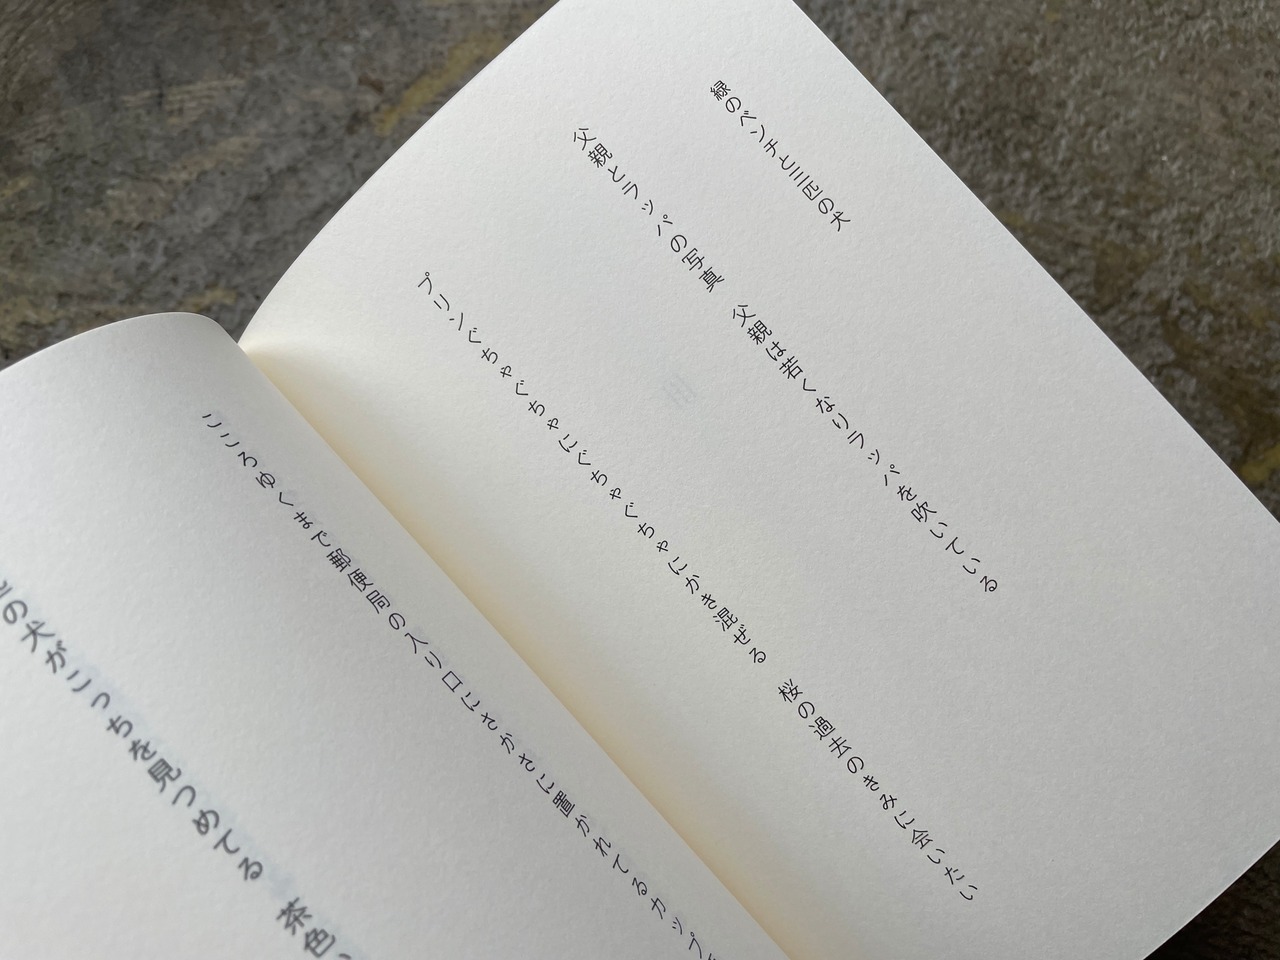 緑のベンチと三匹の犬
父親とラッパの写真　父親は若くなりラッパを吹いている
プリンぐちゃぐちゃにぐちゃぐちゃにかき混ぜる　桜の過去のきみに会いたい
こころゆくまで郵便局の入り口にさかさに置かれてるカップ
の犬がこっちを見つめてる　茶色、